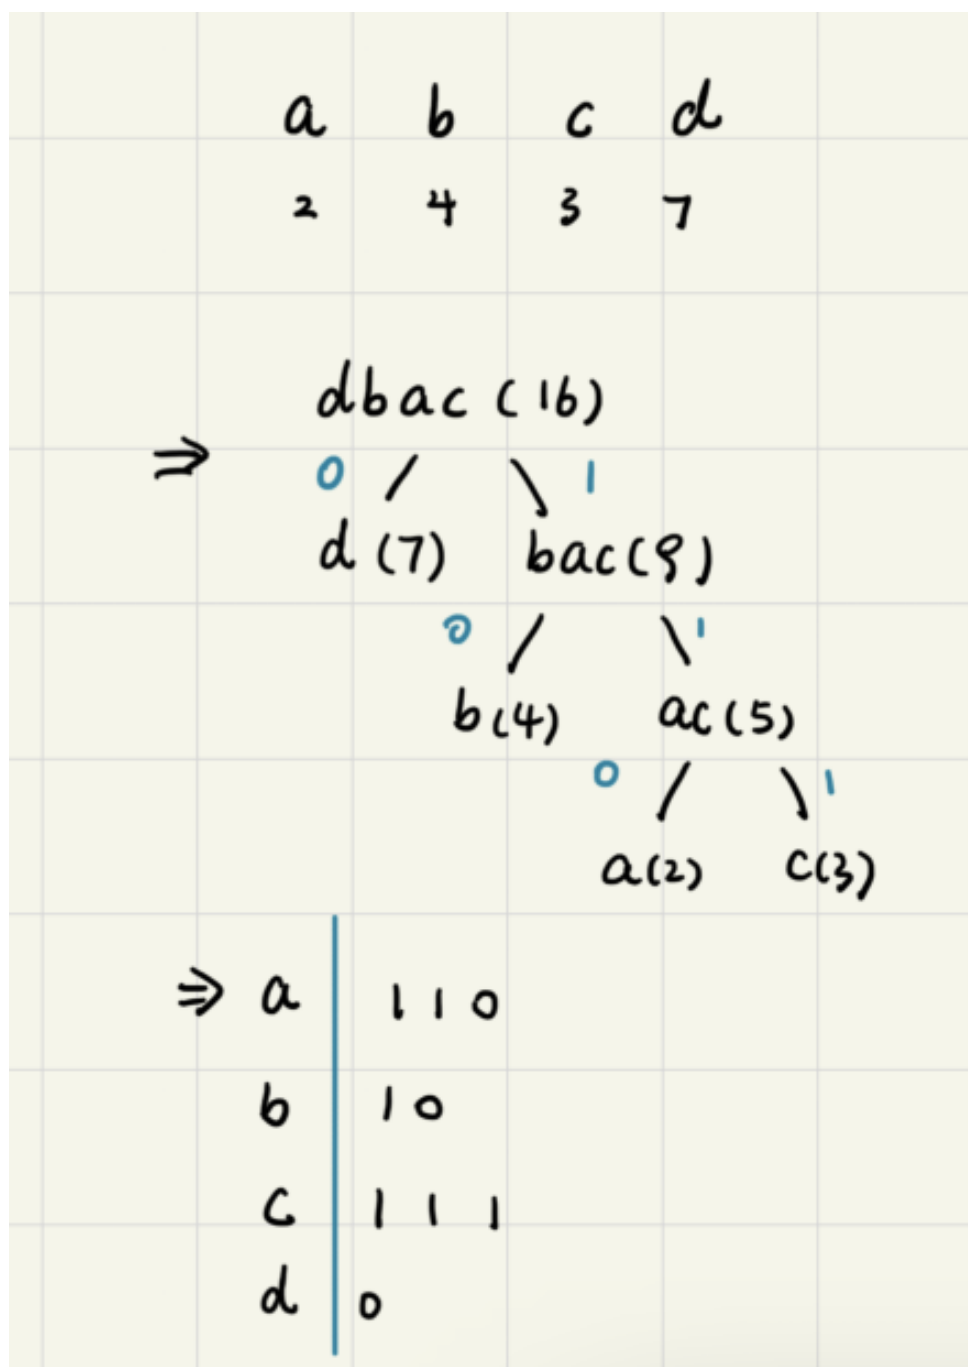 a b c d
2 4 3 7
dbac (16)
⇒ 0 1
d (7) bac(9)
0 1
b(4) ac(5)
0 1
a(2) c(3)
⇒ a 110
b 10
c 111
d 0